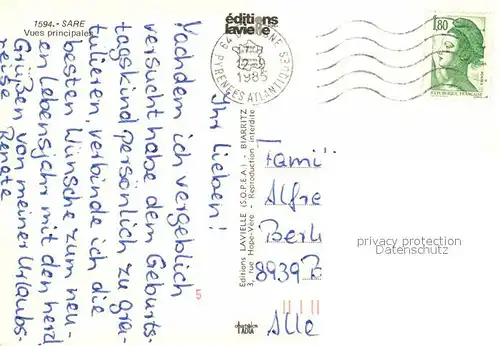 1594.- SARE
Vues principales
éditions
lavielle
64 PYRENEES ATLANTIQUES
12-9
1985
1,80
REPUBLIQUE FRANÇAISE
Ihr Lieben!
Nachdem ich vergeblich
versucht habe dem Geburts-
tagskind persönlich zu gra-
tulieren, verbinde ich die
besten Wünsche zum neu-
en Lebensjahr mit den herzl.
Grüßen von meiner Urlaubs-
reise
Renate
Editions LAVIELLE (S.O.P.E.A.) - BIARRITZ
3, rue Hope-Vère - Reproduction interdite
5
Fami
Alfre
Berli
8939
Alle
privacy protection
Datenschutz